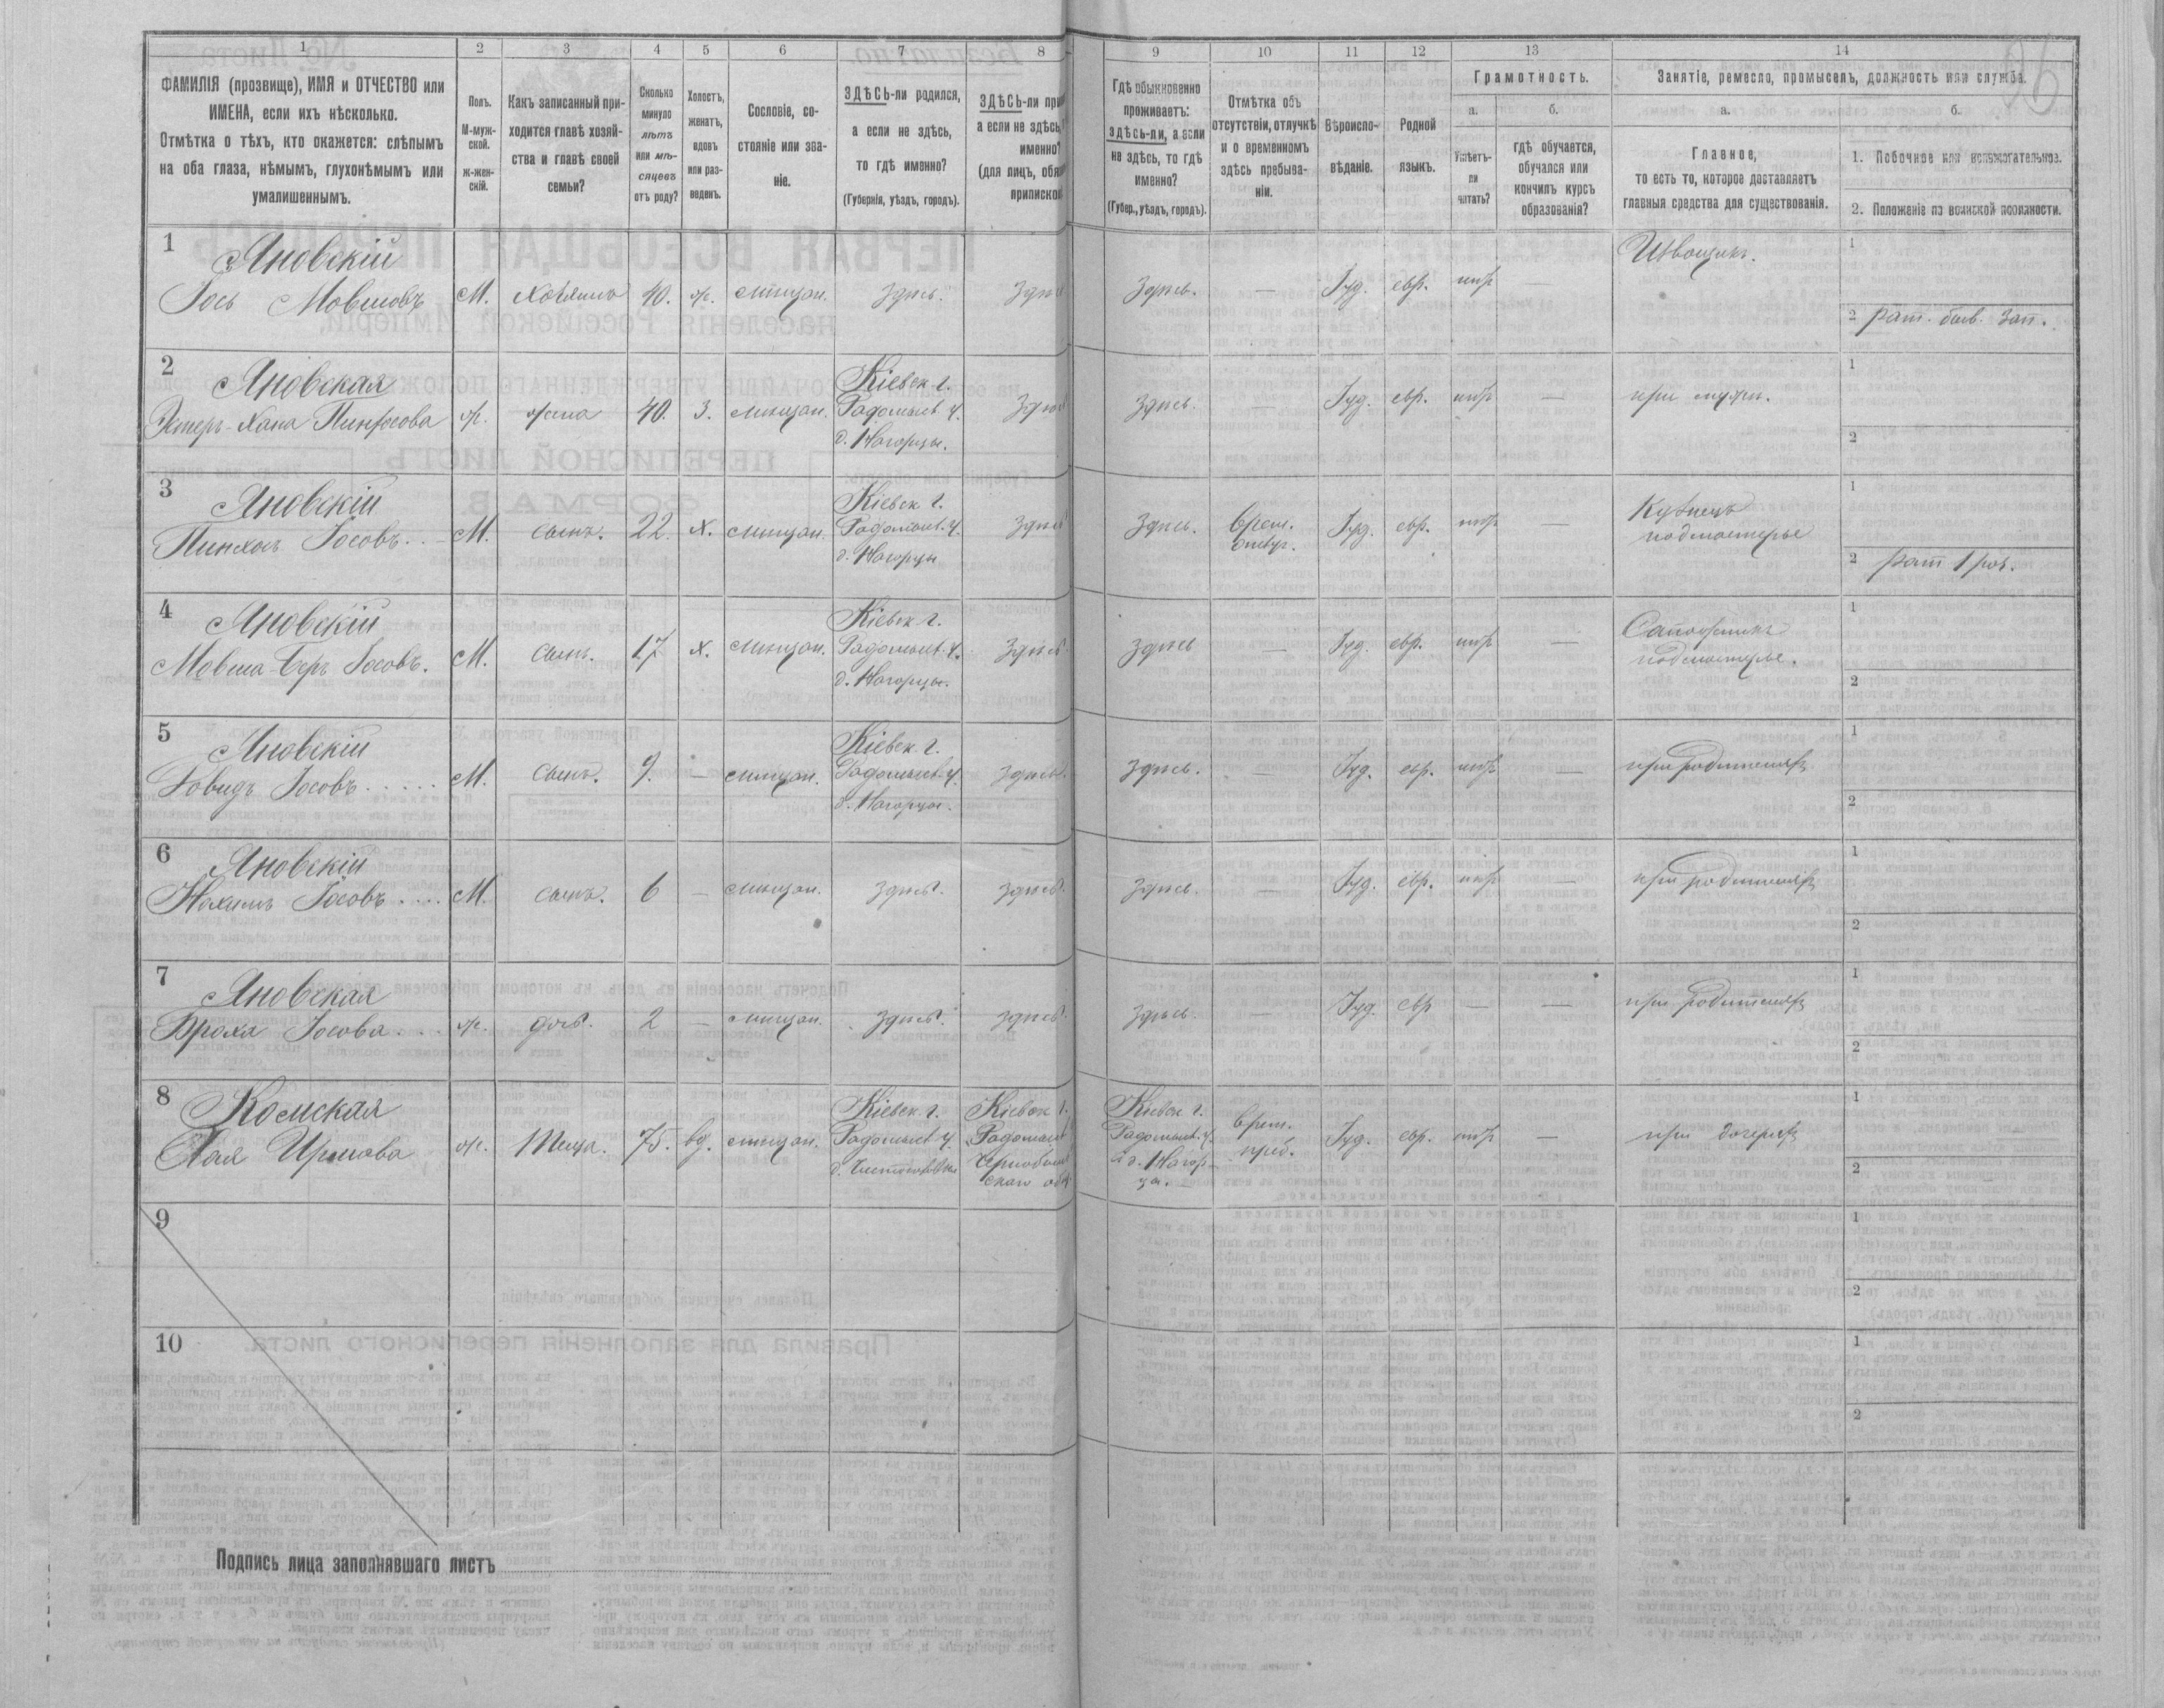 1 2 3 4 5 6 7 8 9 10 11 12 13 14
ФАМИЛІЯ (прозвище), ИМЯ и ОТЧЕСТВО или
ИМЕНА, если ихъ нѣсколько.
Отмѣтка о тѣхъ, кто окажется: слѣпымъ
на оба глаза, нѣмымъ, глухонѣмымъ или
умалишеннымъ.
Полъ.
М-муж-
ской.
Ж-жен-
скій.
Какъ записанный при-
ходится главѣ хозяй-
ства и главѣ своей
семьи?
Сколько
минуло
лѣтъ
или мѣ-
сяцевъ
отъ роду?
Холостъ,
женатъ,
вдовъ
или раз-
веденъ.
Сословіе, со-
стояніе или зва-
ніе.
ЗДѢСЬ-ли родился,
а если не здѣсь,
то гдѣ именно?
(Губернія, уѣздъ, городъ).
ЗДѢСЬ-ли при
а если не здѣсь,
именно?
(для лицъ, обяз
припиской
Гдѣ обыкновенно
проживаетъ:
здѣсь-ли, а если
не здѣсь, то гдѣ
именно?
(Губер., уѣздъ, городъ).
Отмѣтка объ
отсутствіи, отлучкѣ
и о временномъ
здѣсь пребыва-
ніи.
Вѣроиспо-
вѣданіе.
Родной
языкъ.
Грамотность.
а. б.
Умѣетъ-
ли
читать?
гдѣ обучается,
обучался или
кончилъ курсъ
образованія?
Занятіе, ремесло, промыселъ, должность или служба.
а. б.
Главное,
то есть то, которое доставляетъ
главныя средства для существованія.
1. Побочное или вспомогательное.
2. Положеніе по воинской повинности.
96
1 Яновскій
Іось Мовшовъ М. хозяинъ 40. ж. мѣщан. здѣсь. здѣсь здѣсь. — Іуд. евр. нѣтъ —
Извощикъ.
1
2 рат. бывш. зап.
2 Яновская
Эстеръ-Хана Пинхосова ж. жена 40. з. мѣщан. Кіевск. г.
Радомысл. у.
д. Нагорцы.
здѣсь здѣсь. — Іуд. евр. нѣтъ — при мужѣ.
1
2
3 Яновскій
Пинхосъ Іосовъ. М. сынъ. 22. х. мѣщан. Кіевск. г.
Радомысл. у.
д. Нагорцы
здѣсь здѣсь. врем.
отсут. Іуд. евр. нѣтъ —
Кузнецъ
подмастерье
1
2 рат 1 раз.
4 Яновскій
Мовша-Беръ Іосовъ. М. сынъ. 17 х. мѣщан. Кіевск. г.
Радомысл. у.
д. Нагорцы.
здѣсь здѣсь — Іуд. евр. нѣтъ —
Сапожникъ
подмастерье.
1
2
5 Яновскій
Довидъ Іосовъ..... М. сынъ. 9. — мѣщан. Кіевск. г.
Радомысл. у.
д. Нагорцы.
здѣсь. здѣсь. — Іуд. евр. нѣтъ — при родителяхъ
1
2
6 Яновскій
Нахимъ Іосовъ.... М. сынъ. 6 — мѣщан. здѣсь. здѣсь. здѣсь. — Іуд. евр. нѣтъ — при родителяхъ
1
2
7 Яновская
Броха Іосова... ж. дочь. 2 — мѣщан. здѣсь. здѣсь. здѣсь. — Іуд. евр — — при родителяхъ
1
2
8
Хая ж. Теща. 75. вд. мѣщан. Кіевск. г.
Радомысл. у.
д.
Кіевск. г.
Радомысл
Чернобыль
скаго общ
Кіевск. г.
Радомысл. у.
д. Нагор-
цы.
врем.
преб. Іуд. евр. нѣтъ — при дочеряхъ
1
2
9
1
2
10
1
2
Подпись лица заполнявшаго листъ